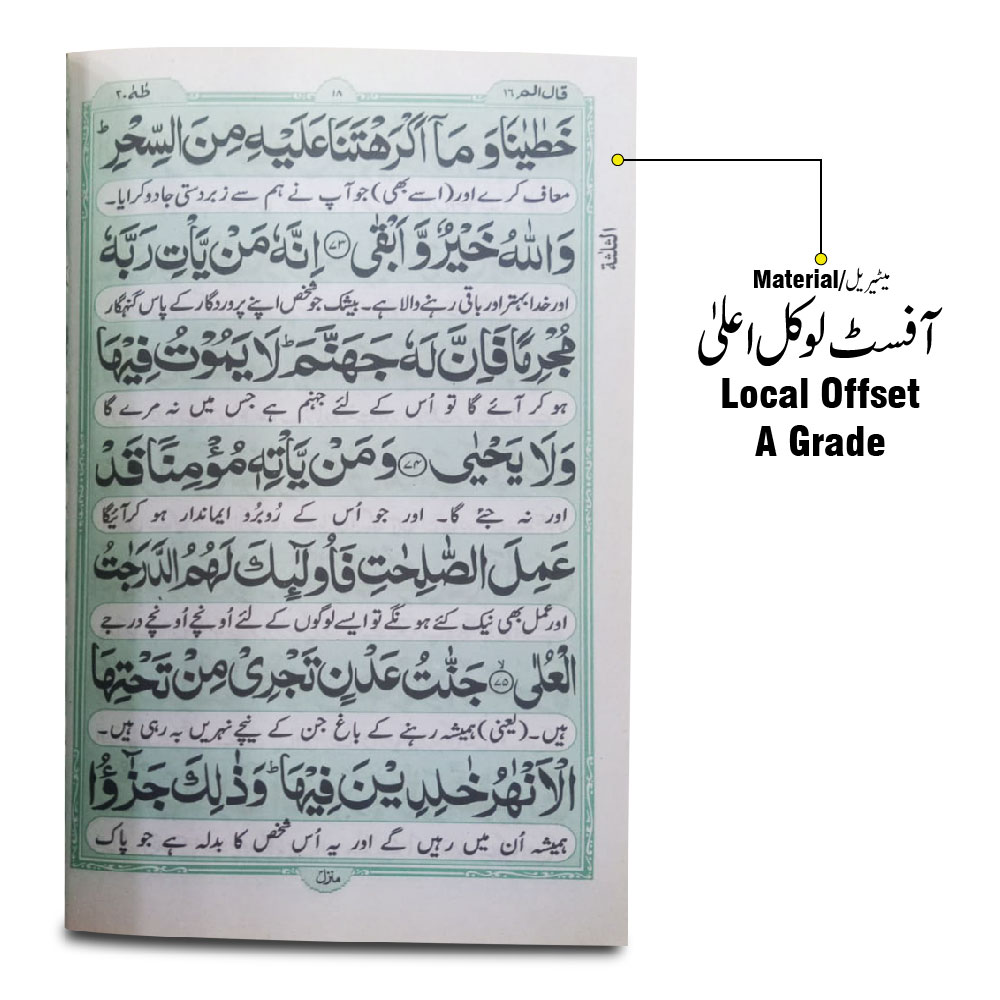 قال الم ١٦
١٨
طٰهٰ ٢٠
خَطٰيٰنَا وَ مَاۤ اَكْرَهْتَنَا عَلَيْهِ مِنَ السِّحْرِ ؕ
معاف کرے اور (اسے بھی) جو آپ نے ہم سے زبردستی جادو کرایا۔
وَاللّٰهُ خَيْرٌ وَّ اَبْقٰى ﴿٧٣﴾ اِنَّهٗ مَنْ يَّاْتِ رَبَّهٗ
اور خدا بہتر اور باقی رہنے والا ہے۔ بیشک جو شخص اپنے پروردگار کے پاس گنہگار
مُجْرِمًا فَاِنَّ لَهٗ جَهَنَّمَ ؕ لَا يَمُوْتُ فِيْهَا
ہو کر آئے گا تو اُس کے لئے جہنم ہے جس میں نہ مرے گا
وَلَا يَحْيٰى ﴿٧٤﴾ وَ مَنْ يَّاْتِهٖ مُؤْمِنًا قَدْ
اور نہ جئے گا۔ اور جو اُس کے رُوبرُو ایماندار ہو کر آئیگا
عَمِلَ الصّٰلِحٰتِ فَاُولٰٓئِكَ لَهُمُ الدَّرَجٰتُ
اور عمل بھی نیک کئے ہونگے تو ایسے لوگوں کے لئے اُونچے اُونچے درجے
الْعُلٰى ۙ﴿٧٥﴾ جَنّٰتُ عَدْنٍ تَجْرِىْ مِنْ تَحْتِهَا
ہیں۔ (یعنی) ہمیشہ رہنے کے باغ جن کے نیچے نہریں بہ رہی ہیں۔
الْاَنْهٰرُ خٰلِدِيْنَ فِيْهَا ؕ وَ ذٰلِكَ جَزٰٓؤُا
ہمیشہ اُن میں رہیں گے اور یہ اُس شخص کا بدلہ ہے جو پاک
منزل
الثلثة
Material/میٹیریل
آفسٹ لوکل اعلیٰ
Local Offset
A Grade